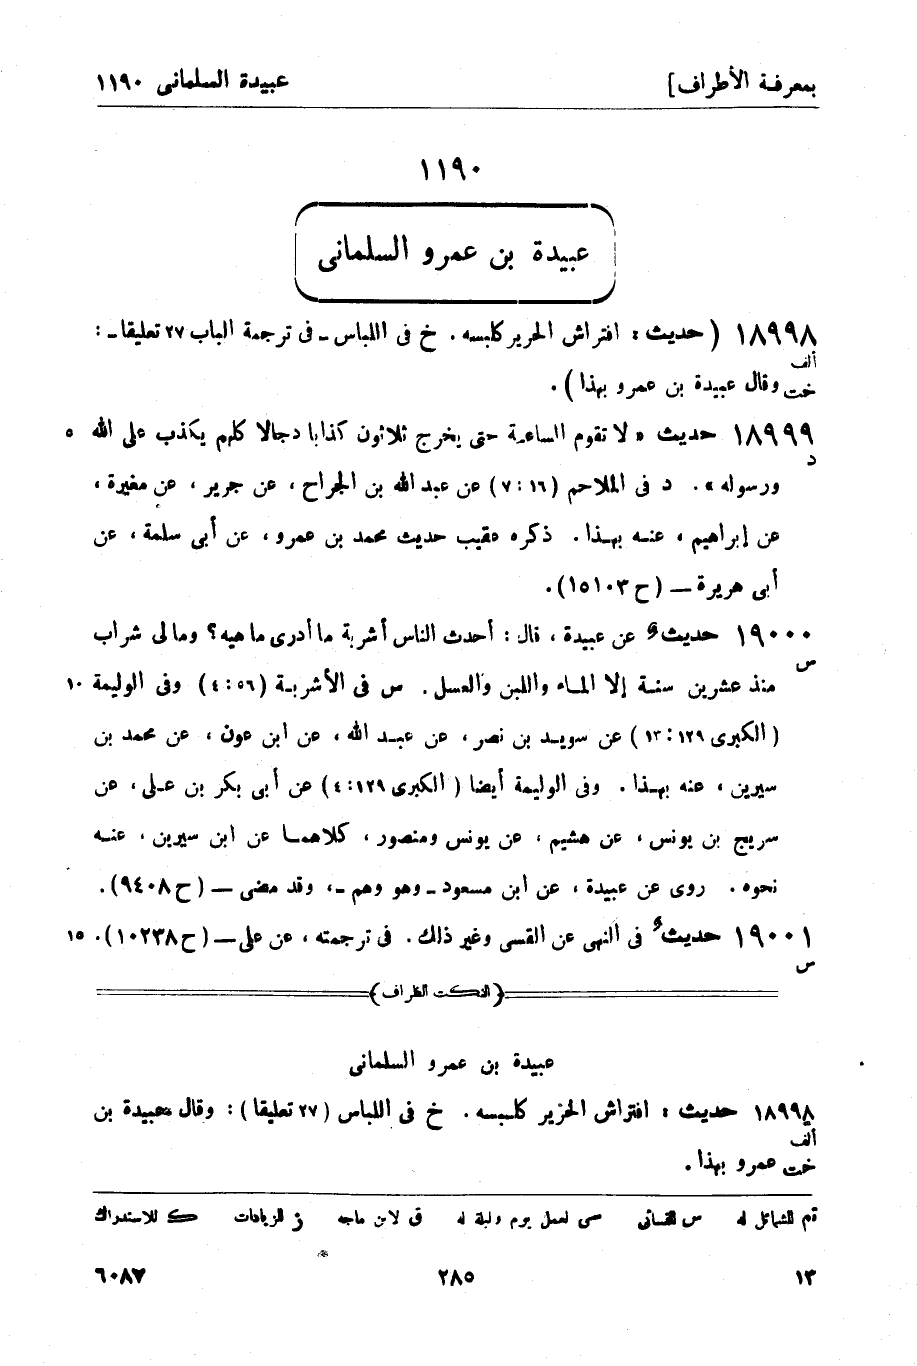 بمعرفة الأطراف] عبيدة السلمانى ١١٩٠
١١٩٠
عبيدة بن عمرو السلمانى
١٨٩٩٨ ( حديث : افتراش الحرير كلبسه . خ فى اللباس ـ فى ترجمة الباب ٢٧ تعليقا ـ :
ألف
خت وقال عبيدة بن عمرو بهذا ) .
١٨٩٩٩ حديث « لا تقوم الساعة حتى يخرج ثلاثون كذابا دجالا كلهم يكذب على الله ٥
د
ورسوله » . د فى الملاحم (١٦ : ٧) عن عبد الله بن الجراح ، عن جرير ، عن مغيرة ،
عن إبراهيم ، عنه بهذا . ذكره عقيب حديث محمد بن عمرو ، عن أبى سلمة ، عن
أبى هريرة — (ح ١٥١٠٣) .
١٩٠٠٠ حديث عن عبيدة ، قال : أحدث الناس أشربة ما أدرى ما هيه ؟ ومالى شراب
س
منذ عشرين سنة إلا الماء واللبن والعسل . س فى الأشربة (٥٦ : ٤) وفى الوليمة ١٠
( الكبرى ١٢٩ : ١٣ ) عن سويد بن نصر ، عن عبد الله ، عن ابن عون ، عن محمد بن
سيرين ، عنه بهذا . وفى الوليمة أيضا ( الكبرى ١٢٩ : ٤ ) عن أبى بكر بن على ، عن
سريج بن يونس ، عن هشيم ، عن يونس ومنصور ، كلاهما عن ابن سيرين ، عنه
نحوه . روى عن عبيدة ، عن ابن مسعود ـ وهو وهم ـ ، وقد مضى — (ح ٩٤٠٨) .
١٩٠٠١ حديث فى النهى عن القسى وغير ذلك . فى ترجمته ، عن على — (ح ١٠٢٣٨) . ١٥
س
(النكت الظراف)
عبيدة بن عمرو السلمانى
١٨٩٩٨ حديث : افتراش الحزير كلبسه . خ فى اللباس ( ٢٧ تعليقا ) : وقال عبيدة بن
ألف
خت عمرو بهذا .
تم للشمائل له س للنسائى سى لعمل يوم وليلة له ق لابن ماجه ز للزيادات ك للاستدراك
١٣ ٢٨٥ ٦٠٨٧